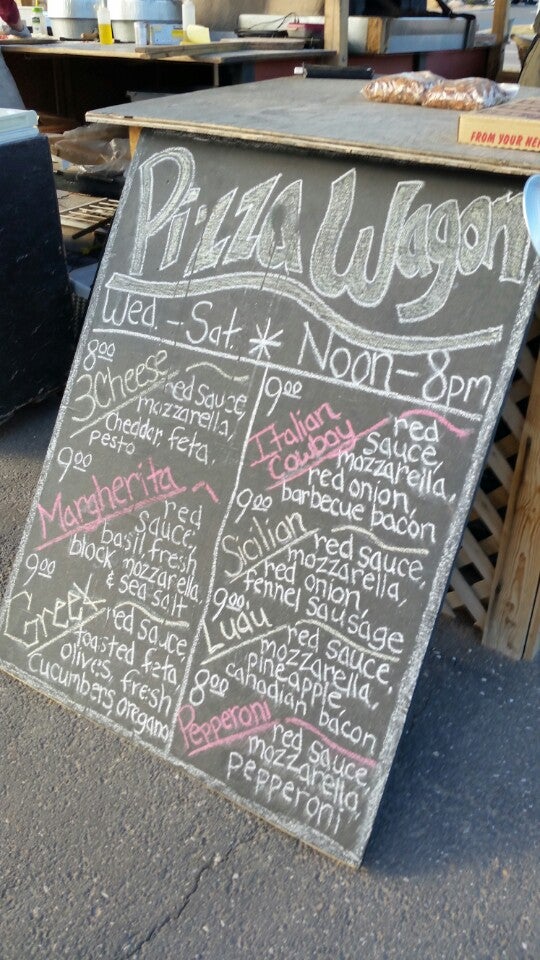 FROM YOUR NEI
Pizza Wagon
Wed. - Sat. * Noon - 8pm
8.00
3 Cheese
red sauce,
mozzarella,
cheddar, feta,
pesto
9.00
Margherita
red
sauce,
basil, fresh
block mozzarella,
& sea salt
9.00
Greek
red sauce
toasted feta,
olives, fresh
cucumbers, oregano
9.00
Italian
Cowboy
red
sauce,
mozzarella,
red onion,
barbecue bacon
9.00
Sicilian
red sauce,
mozzarella,
red onion,
fennel sausage
9.00
Luau
red sauce,
mozzarella,
pineapple,
canadian bacon
8.00
Pepperoni
red sauce,
mozzarella,
pepperoni